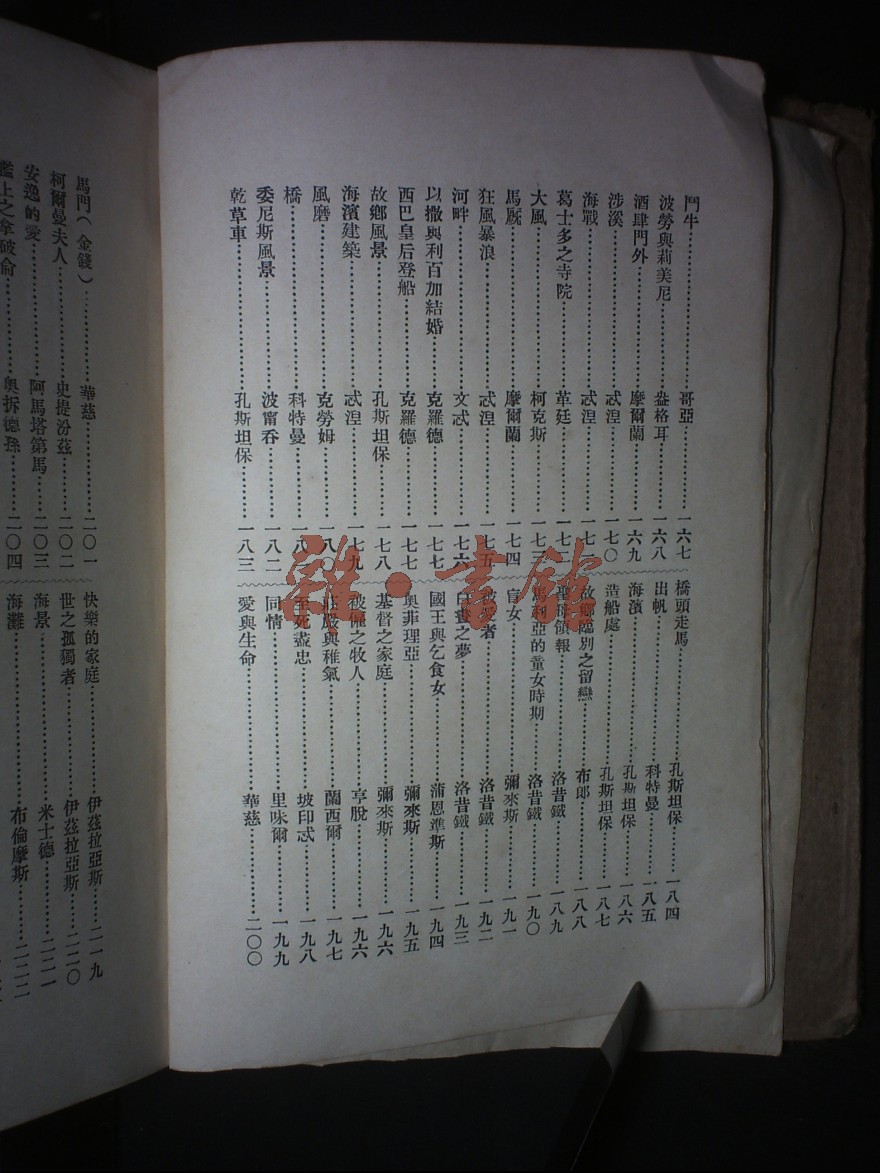 鬥牛…………哥亞……一六七
波勞與莉美尼…………盎格耳……一六八
酒肆門外…………摩爾蘭……一六九
涉溪…………忒涅……一七〇
海戰…………忒涅……一七一
葛士多之寺院…………革廷……一七二
大風…………柯克斯……一七三
馬厩…………摩爾蘭……一七四
狂風暴浪…………忒涅……一七五
河畔…………文忒……一七六
以撒與利百加結婚…………克羅德……一七七
西巴皇后登船…………克羅德……一七七
故鄉風景…………孔斯坦保……一七八
海濱建築…………忒涅……一七九
風磨…………克勞姆……一八〇
橋…………科特曼……一八一
委尼斯風景…………波甯吞……一八二
乾草車…………孔斯坦保……一八三
橋頭走馬…………孔斯坦保……一八四
出帆…………科特曼……一八五
海濱…………孔斯坦保……一八六
造船處…………孔斯坦保……一八七
故鄉臨別之留戀…………布郎……一八八
聖母領報…………洛昔鐵……一八九
馬利亞的童女時期…………洛昔鐵……一九〇
盲女…………彌來斯……一九一
被愛者…………洛昔鐵……一九二
白晝之夢…………洛昔鐵……一九三
國王與乞食女…………蒲恩準斯……一九四
奧菲理亞…………彌來斯……一九五
基督之家庭…………彌來斯……一九六
被僱之牧人…………亨脫……一九六
莊嚴與稚氣…………蘭西爾……一九七
至死盡忠…………坡印忒……一九八
同情…………里味爾……一九九
愛與生命…………華慈……二〇〇
馬門(金錢)…………華慈……二〇一
柯爾曼夫人…………史提汾茲……二〇二
安逸的愛…………阿馬塔第馬……二〇三
艦上之拿破侖…………奥拆德孫……二〇四
快樂的家庭…………伊茲拉亞斯……二一九
世之孤獨者…………伊茲拉亞斯……二二〇
海景…………米士德……二二一
海灘…………布倫摩斯……二二二
雜·書館